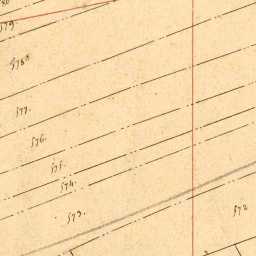 579
578
577.
576.
575.
574.
573.
572